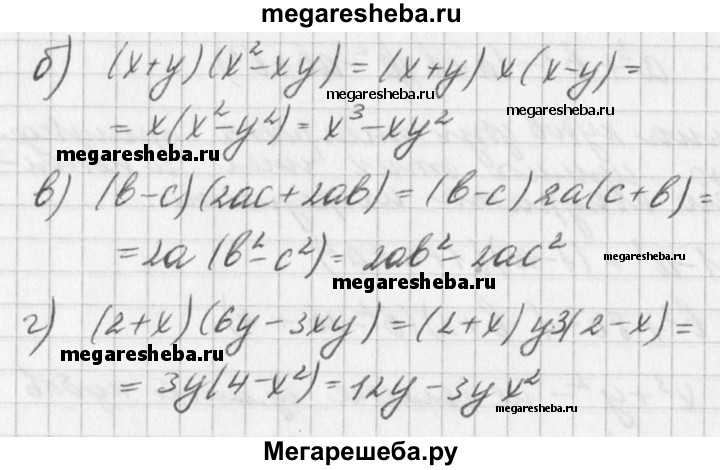 megaresheba.ru
б) (x+y)(x²-xy)=(x+y)x(x-y)=
megaresheba.ru
megaresheba.ru
=x(x²-y²)=x³-xy²
megaresheba.ru
в) (b-c)(2ac+2ab)=(b-c)2a(c+b)=
=2a(b²-c²)=2ab²-2ac²
megaresheba.ru
megaresheba.ru
г) (2+x)(6y-3xy)=(2+x)y3(2-x)=
megaresheba.ru
=3y(4-x²)=12y-3yx²
megaresheba.ru
Мегарешеба.ру